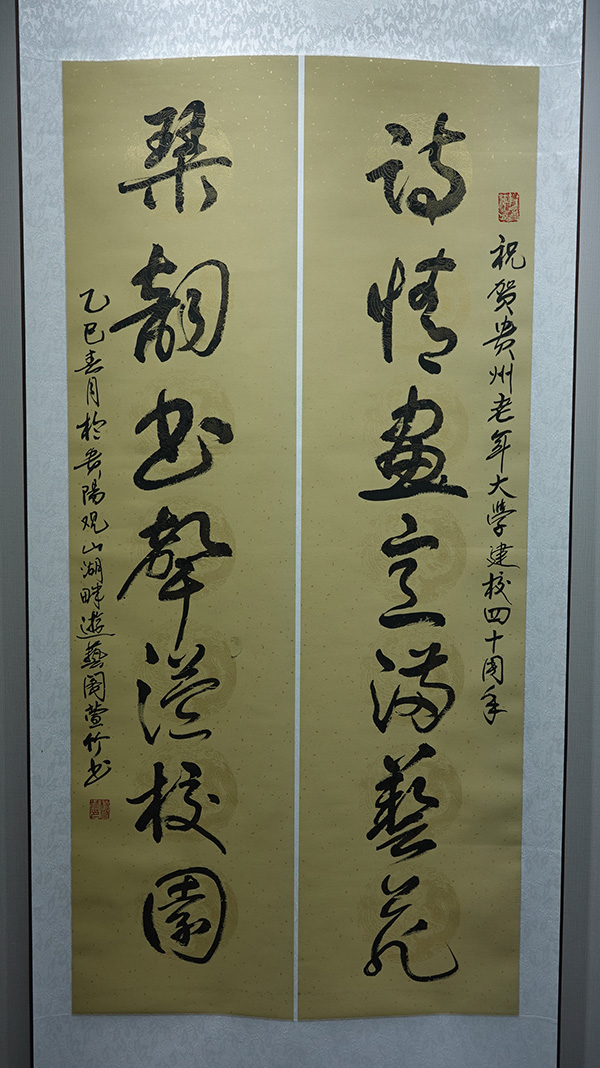 祝贺贵州老年大學建校四十周年
诗情畫意满藝苑
琴韵书聲溢校園
乙巳春月於贵陽观山湖畔遊藝閣萱竹书